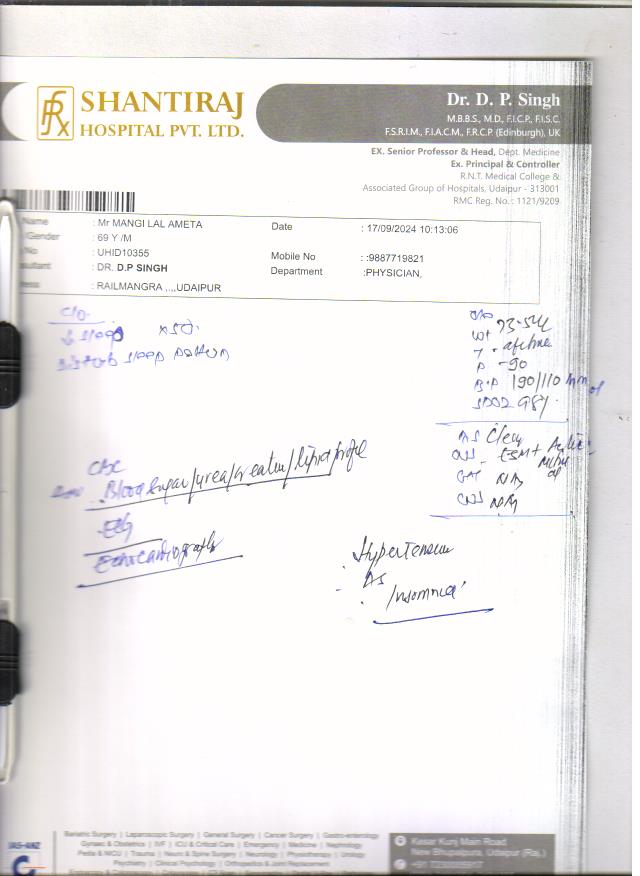 SHANTIRAJ
HOSPITAL PVT. LTD.
Dr. D. P. Singh
M.B.B.S., M.D., F.I.C.P., F.I.S.C.
F.S.R.I.M., F.I.A.C.M., F.R.C.P. (Edinburgh), UK
EX. Senior Professor & Head, Dept. Medicine
Ex. Principal & Controller
R.N.T. Medical College &
Associated Group of Hospitals, Udaipur - 313001
RMC Reg. No. : 1121/9209
Name : Mr MANGI LAL AMETA Date : 17/09/2024 10:13:06
/Gender : 69 Y /M
No : UHID10355 Mobile No : :9887719821
sultant : DR. D.P SINGH Department :PHYSICIAN,
ess : RAILMANGRA ,,,,UDAIPUR
C/o
↓ sleep
Disturb sleep pattern
O/E
Wt 73.5
T - afebrile
P - 90
B.P 190/110 mm of
SPO2 98%
RS Clear
CNS - ESM +
CNS NAD
CBC
Blood sugar/urea/creatin/lipid profile
ECG
Echocardiography
Hypertension
AS
Insomnia
Bariatric Surgery | Laparoscopic Surgery | General Surgery | Cancer Surgery | Gastro-enterology
Gynaec & Obstetrics | IVF | ICU & Critical Care | Emergency | Medicine | Nephrology
Pedia & NICU | Trauma | Neuro & Spine Surgery | Neurology | Physiotherapy | Urology
Psychiatry | Clinical Psychology | Orthopaedics & Joint Replacement
Kesar Kunj Main Road
New Bhupalpura, Udaipur (Raj.)